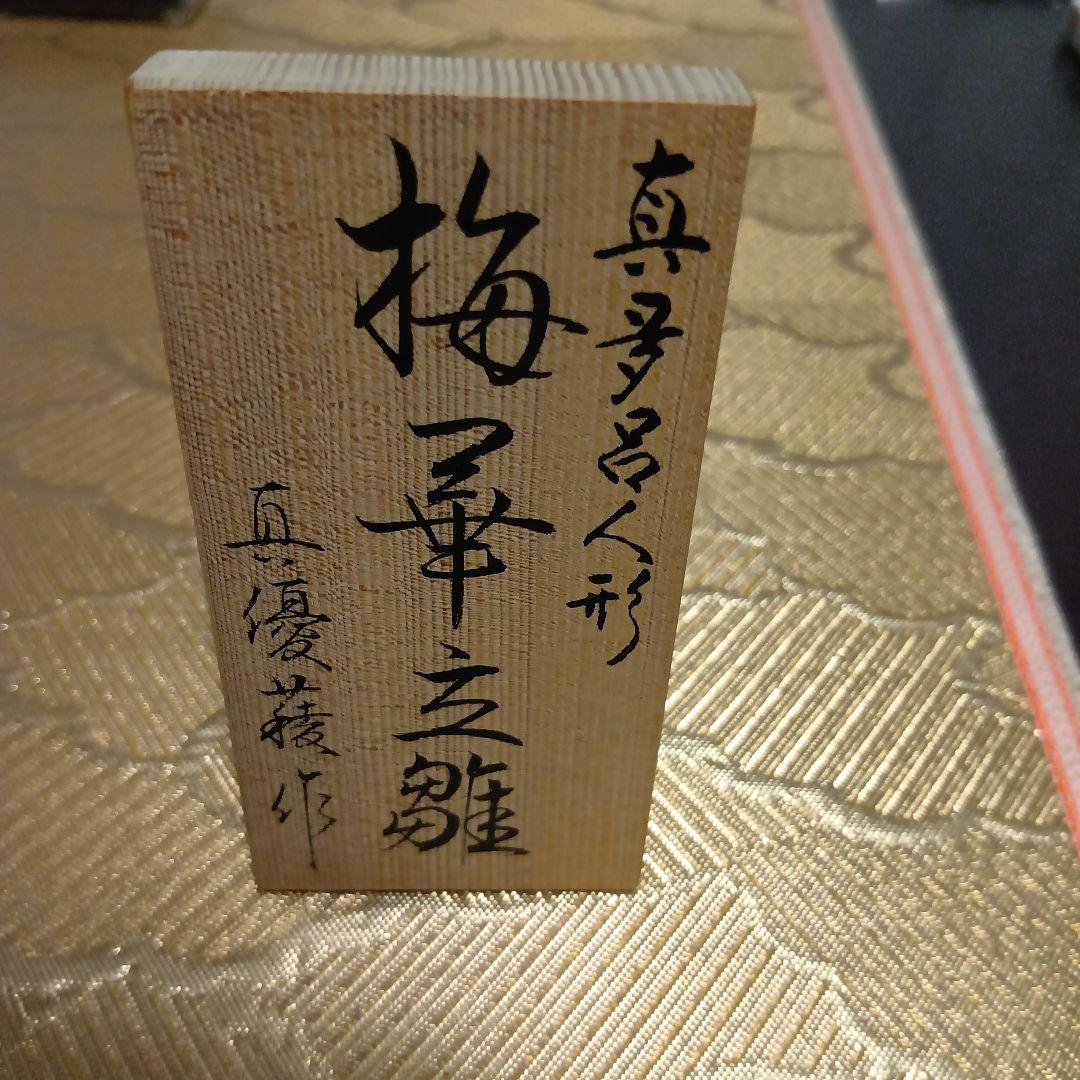 真多呂人形
梅華立雛
真優蔆作